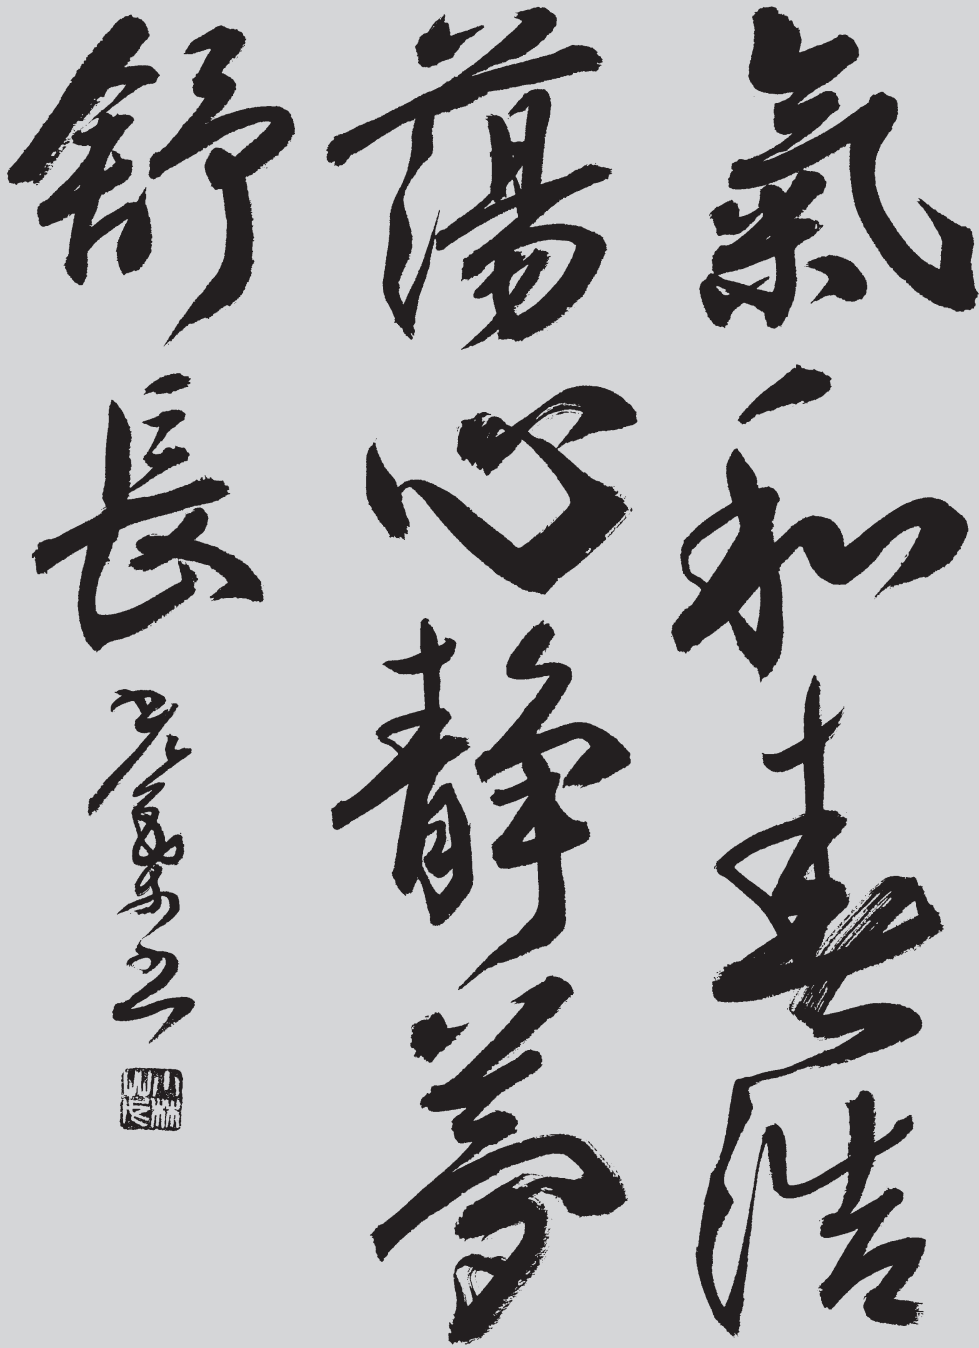 氣和春浩
蕩心靜夢
舒長